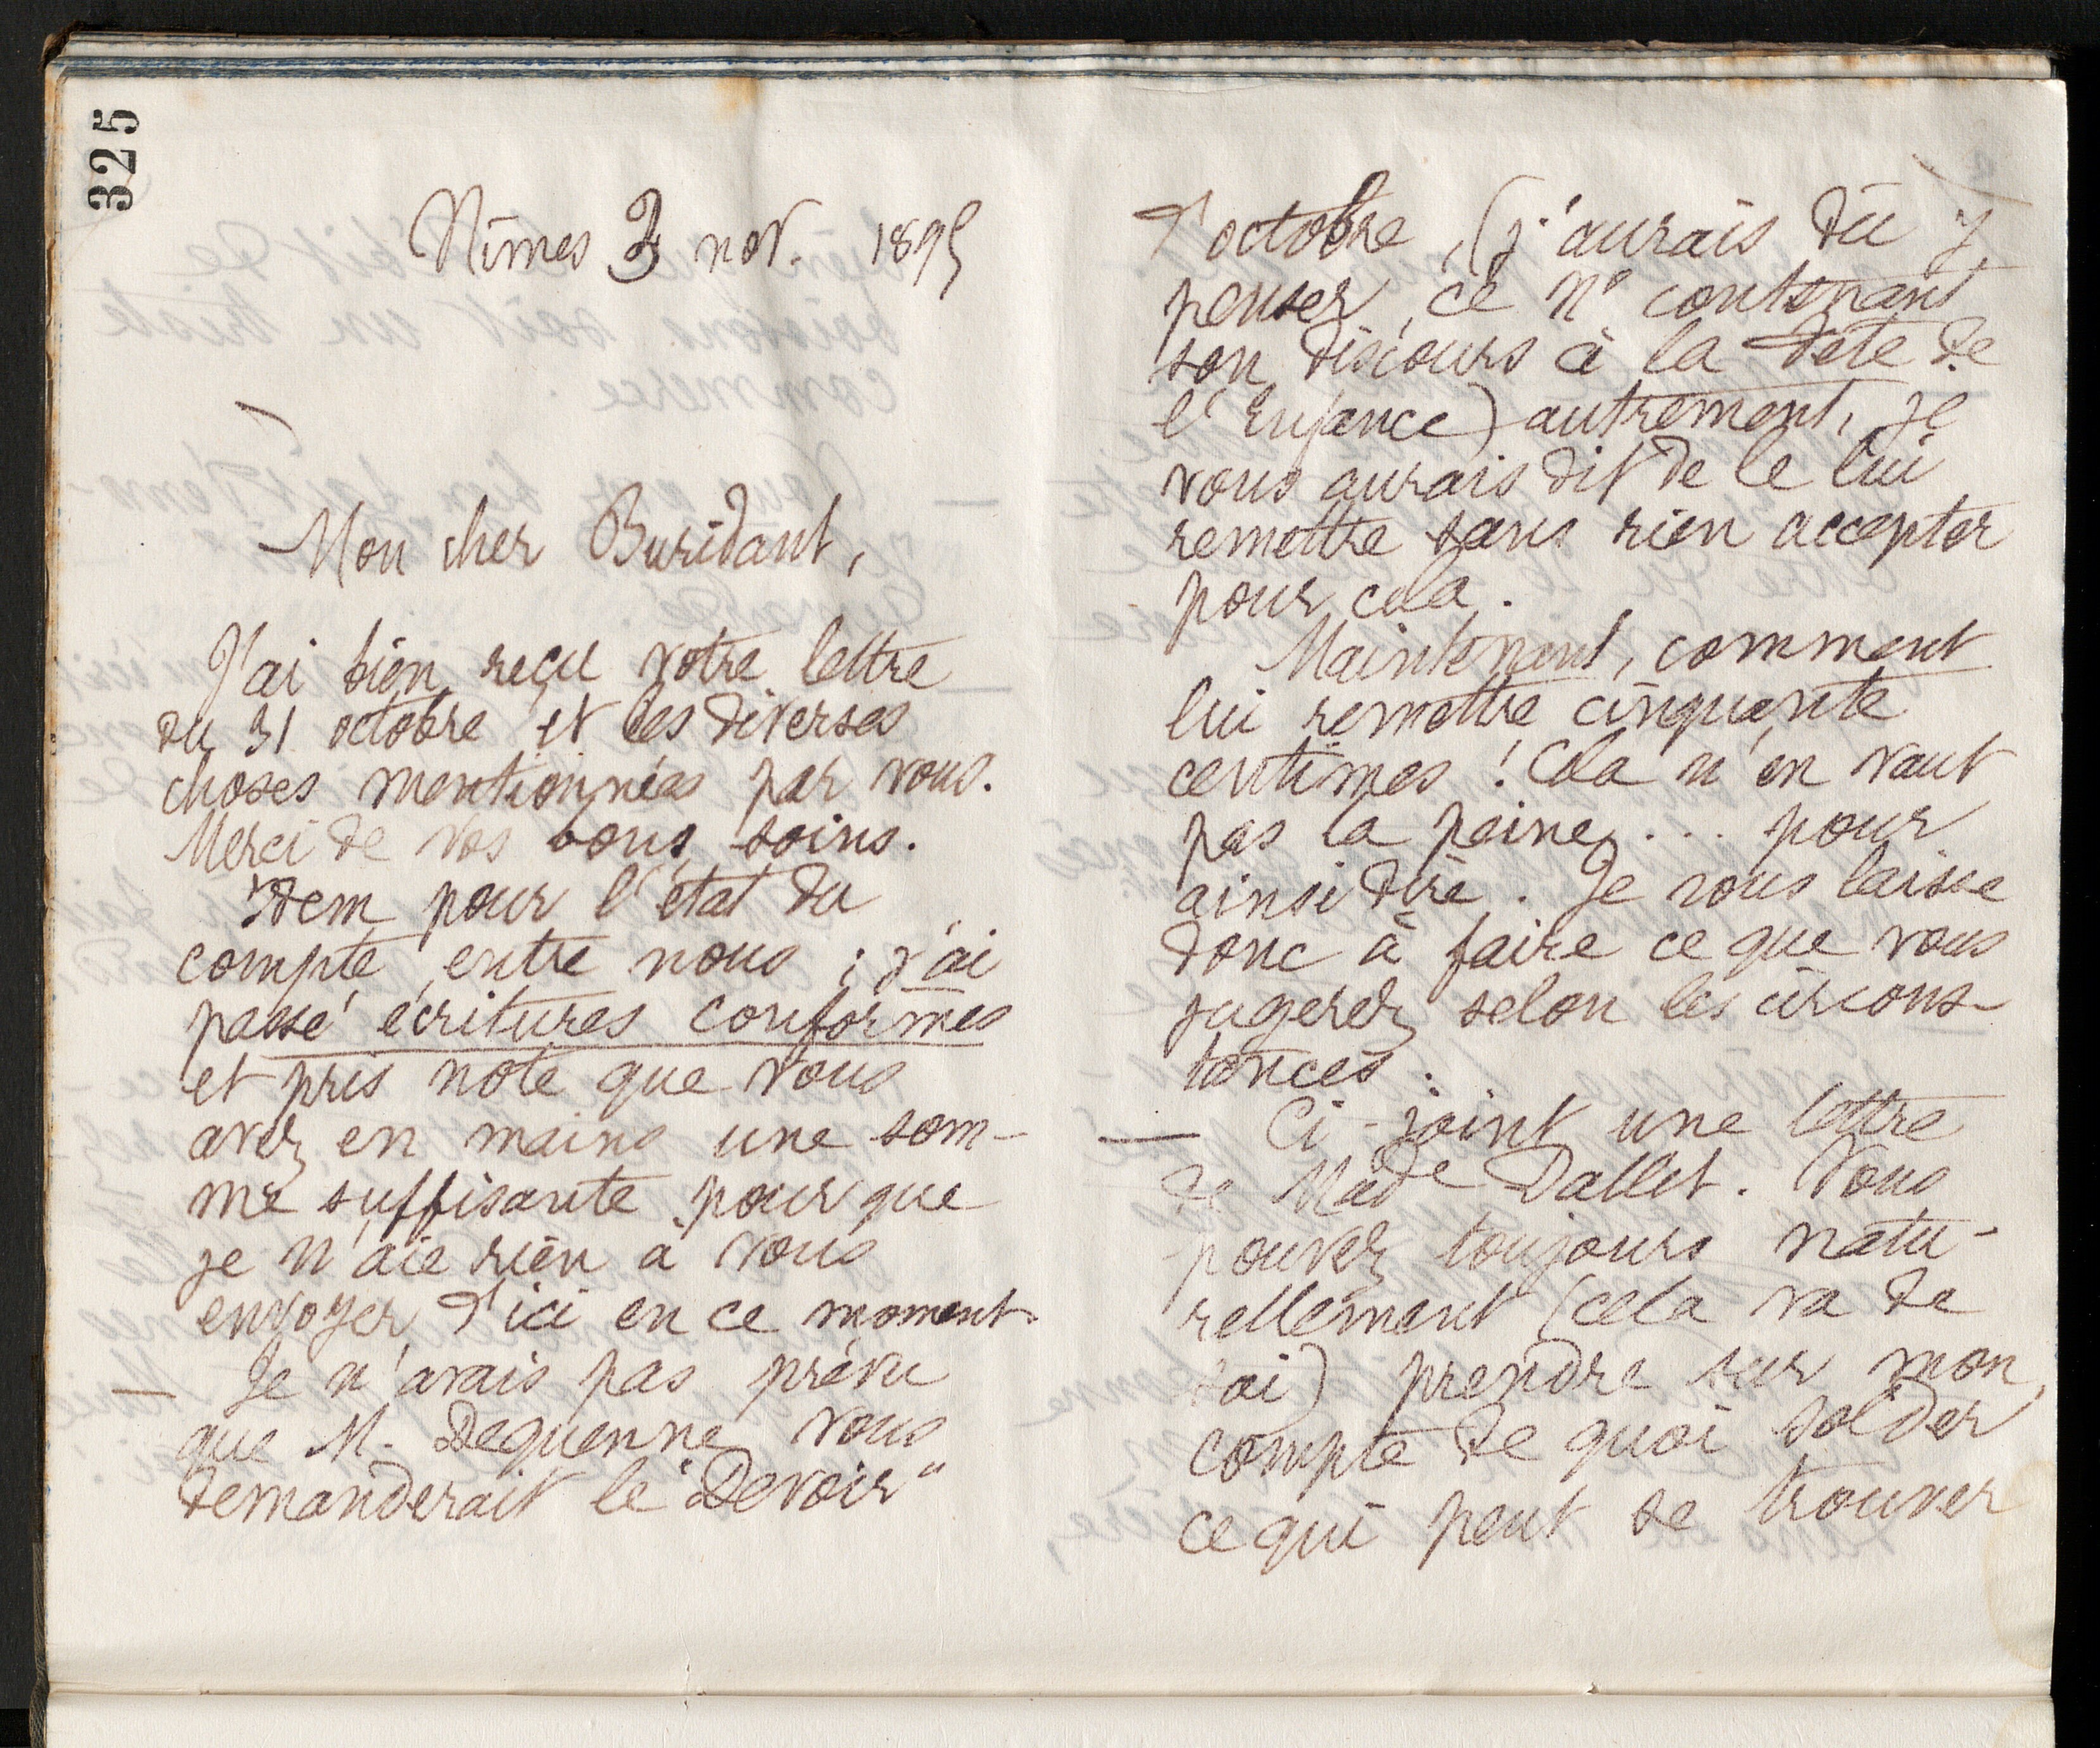 325
Nîmes 3 nov. 1895
Mon cher Buridant,
J'ai bien reçu votre lettre
du 31 octobre et les diverses
choses mentionnées par vous.
Merci de vos bons soins.
Idem pour l'état du
compte entre nous ; j'ai
passé écritures conformes
et pris note que vous
avez en mains une som-
me suffisante pour que
je n'aie rien à vous
envoyer d'ici en ce moment.
— Je n'avais pas prévu
que M. Dequenne vous
demanderait le "Devoir"
d'octobre, (j'aurais dû y
penser, ce n° contenant
son discours à la fête de
l'Enfance) autrement, je
vous aurais dit de le lui
remettre sans rien accepter
pour cela.
Maintenant, comment
lui remettre cinquante
centimes ! Cela n'en vaut
pas la peine, ... pour
ainsi dire. Je vous laisse
donc à faire ce que vous
jugerez selon les circons-
tances.
— Ci-joint une lettre
de Made Dallet. Vous
pouvez toujours natu-
rellement (cela va de
soi) prendre sur mon
compte de quoi solder
ce qui peut se trouver